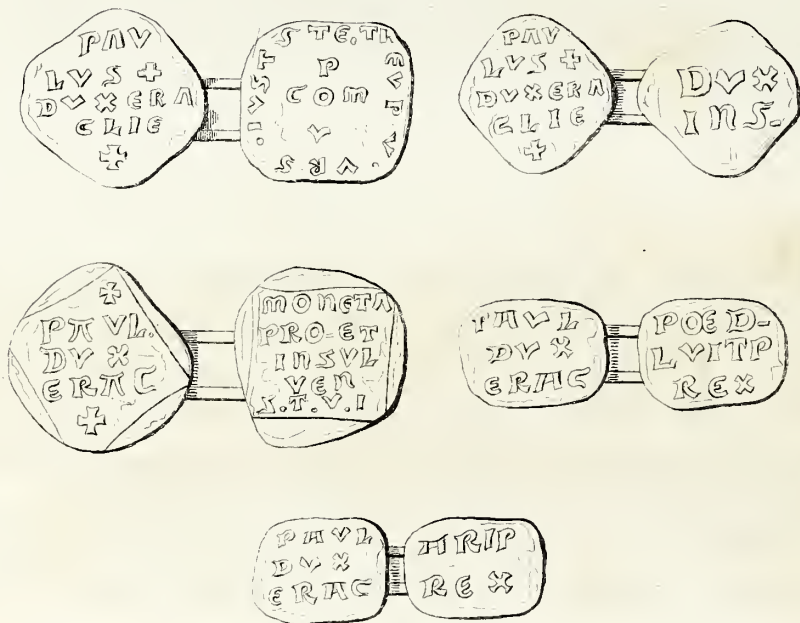 PAV
LVS ✠
DVXERA
CLIE
✠
STE.TH
EVPV.
VRS
.IVST
P
COM
V
PAV
LVS ✠
DVXERA
CLIE
✠
DVX
INS-
✠
PAVL.
DVX
ERAC
✠
MONETA
PRO-ET
INSVL
VEN
S.T.V.I
PAVL
DVX
ERAC
POED-
LVITP
REX
PAVL
DVX
ERAC
ARIP
REX